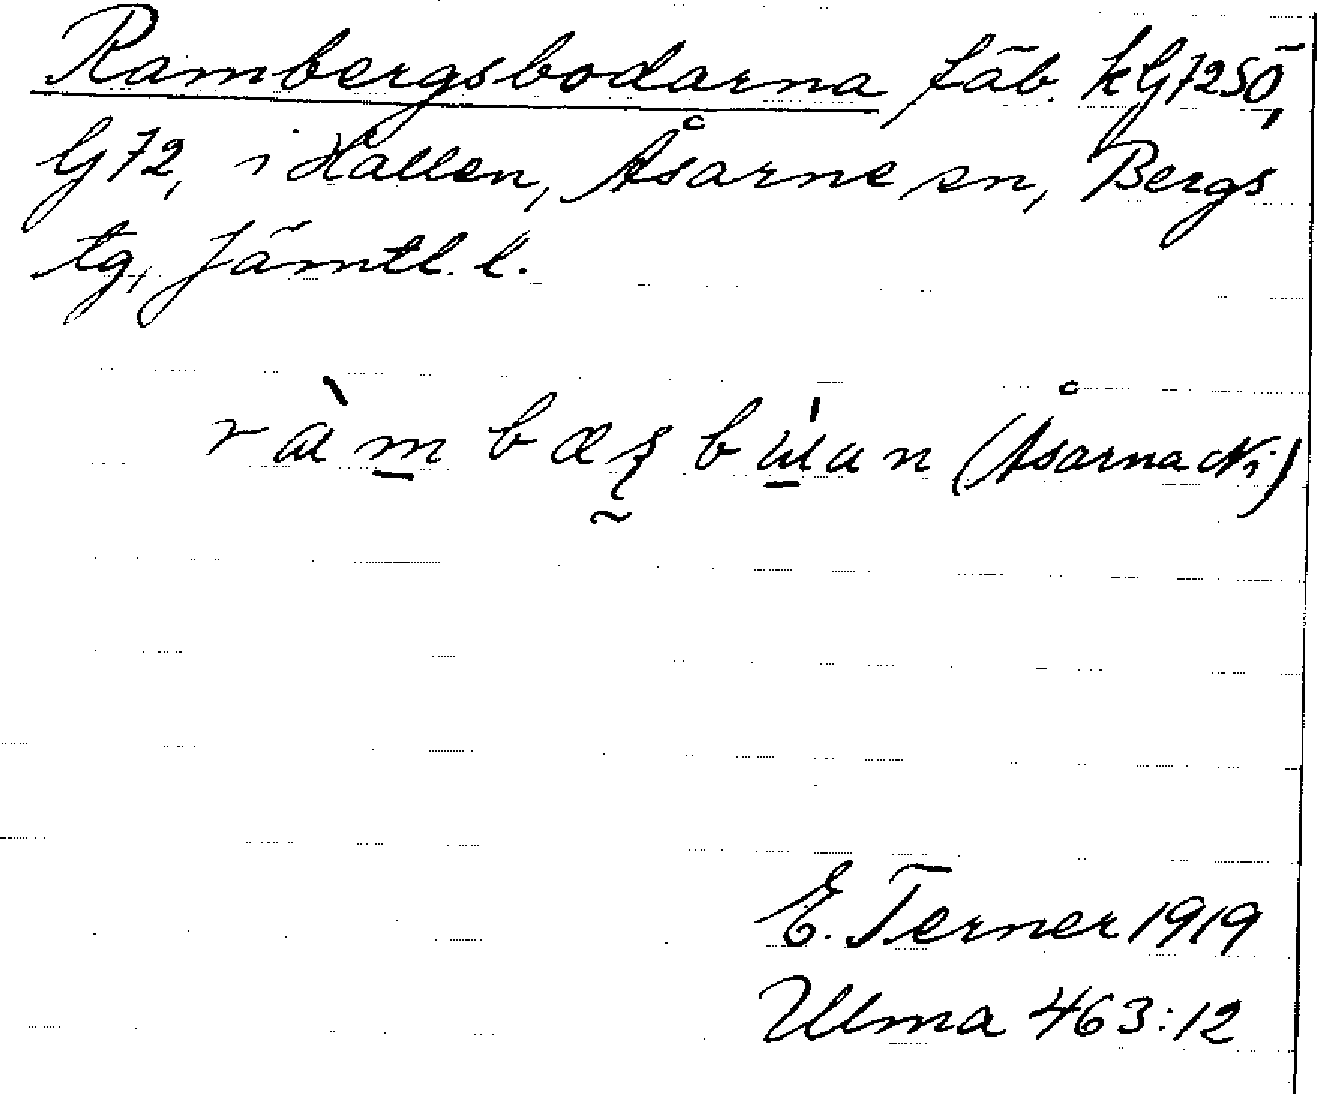 Rambergsbodarna fäb. kG72SÖ,
G72, i Hallen, Åsarne sn, Bergs
tg, Jämtl. l.
(Åsarna N:)
E. Terner 1919
Ulma 463:12